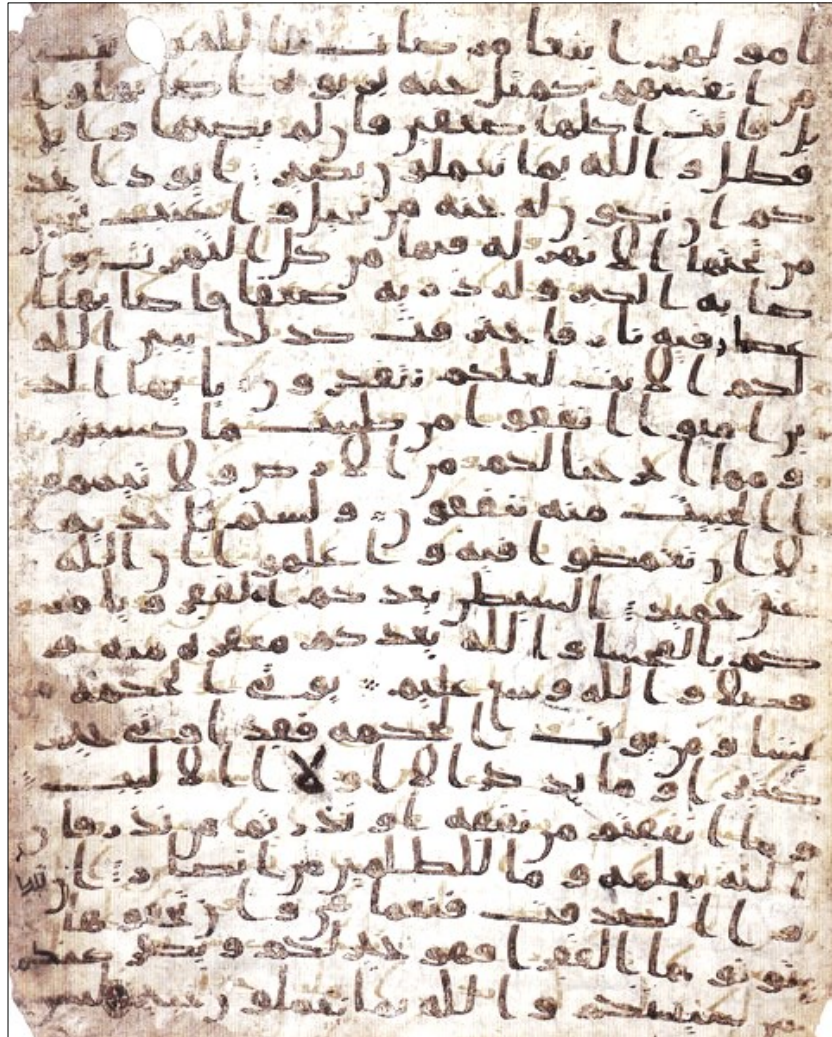 امولهم ابتغا مرضات الله وتثبيتا
من انفسهم كمثل جنة بربوة اصابها وا
بل فاتت اكلها ضعفين فان لم يصبها وابل
فطل والله بما تعملون بصير ايود احد
كم ان تكون له جنة من نخيل واعنب تجري
من تحتها الانهر له فيها من كل الثمرت وا
صابه الكبر وله ذرية ضعفا فاصابها ا
عصار فيه نار فاحترقت كذلك يبين الله
لكم الايت لعلكم تتفكرون يايها الذ
ين امنوا انفقوا من طيبت ما كسبتم
ومما اخرجنا لكم من الارض ولا تيممو
ا الخبيث منه تنفقون ولستم باخذيه ا
لا ان تغمضوا فيه واعلموا ان الله
غني حميد الشيطن يعدكم الفقر ويامر
كم بالفحشا والله يعدكم مغفرة منه و
فضلا والله وسع عليم يوتي الحكمة من
يشا ومن يوت الحكمة فقد اوتي خيرا
كثيرا وما يذكر الا اولا الالبب
وما انفقتم من نفقة او نذرتم من نذر فان
الله يعلمه وما للظلمين من انصار ان تبد
وا الصدقت فنعما هي وان تخفوها
وتوتوها الفقرا فهو خير لكم ويكفر عنكم
من سيتكم والله بما تعملون خبير ليس